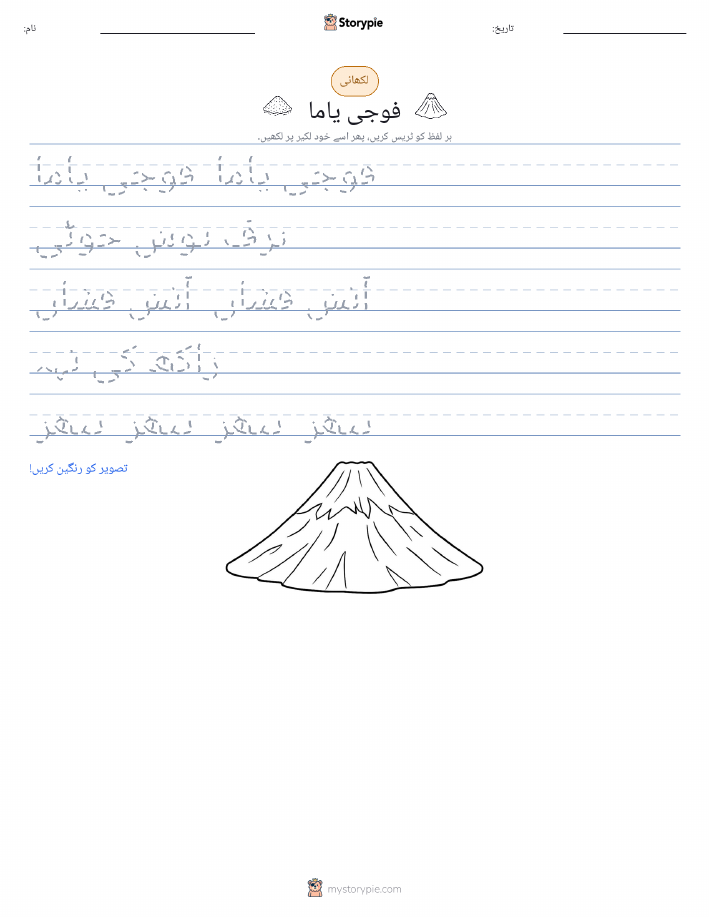 نام: تاریخ:
Storypie
لکھائی
فوجی یاما
ہر لفظ کو ٹریس کریں، پھر اسے خود لکیر پر لکھیں۔
فوجی یاما فوجی یاما
برف پوش چوٹی
آتش فشاں آتش فشاں
راکھ کی تہہ
پتھر پتھر پتھر پتھر
تصویر کو رنگین کریں!
mystorypie.com